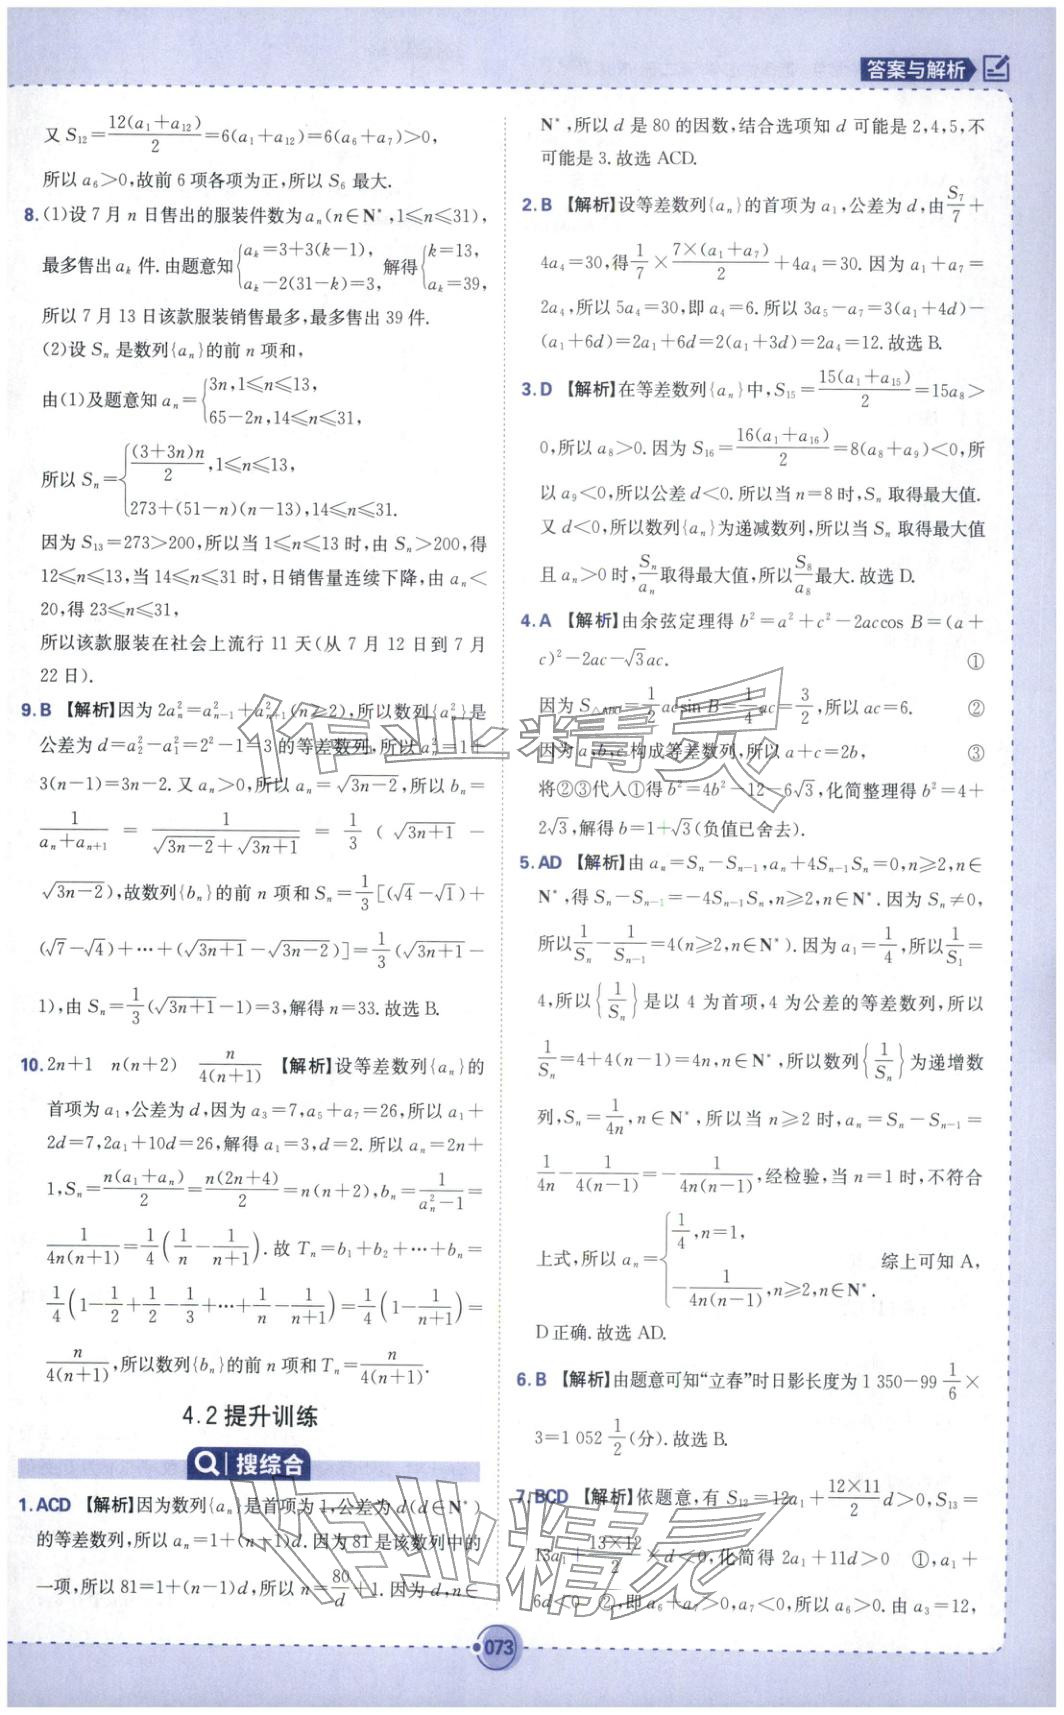 答案与解析
又 S₁₂=12(a₁+a₁₂)/2=6(a₁+a₁₂)=6(a₆+a₇)>0,
所以 a₆>0,故前 6 项各项为正,所以 S₆ 最大.
8.(1)设 7 月 n 日售出的服装件数为 aₙ(n∈N*,1≤n≤31),
最多售出 aₖ 件.由题意知{aₖ=3+3(k-1), aₖ-2(31-k)=3, 解得{k=13, aₖ=39,
所以 7 月 13 日该款服装销售最多,最多售出 39 件.
(2)设 Sₙ 是数列{aₙ}的前 n 项和,
由(1)及题意知 aₙ={3n,1≤n≤13, 65-2n,14≤n≤31,
所以 Sₙ={(3+3n)n/2,1≤n≤13, 273+(51-n)(n-13),14≤n≤31.
因为 S₁₃=273>200,所以当 1≤n≤13 时,由 Sₙ>200,得
12≤n≤13,当 14≤n≤31 时,日销售量连续下降,由 aₙ<
20,得 23≤n≤31,
所以该款服装在社会上流行 11 天(从 7 月 12 日到 7 月
22 日).
9.B 【解析】因为 2aₙ²=aₙ₋₁²+aₙ₊₁²(n≥2),所以数列{aₙ²}是
公差为 d=a₂²-a₁²=2²-1=3 的等差数列,所以 aₙ²=1+
3(n-1)=3n-2.又 aₙ>0,所以 aₙ=√(3n-2),所以 bₙ=
1/(aₙ+aₙ₊₁) = 1/(√(3n-2)+√(3n+1)) = 1/3 (√(3n+1) -
√(3n-2)),故数列{bₙ}的前 n 项和 Sₙ=1/3[(√4-√1)+
(√7-√4)+…+(√(3n+1)-√(3n-2))]=1/3(√(3n+1)-
1),由 Sₙ=1/3(√(3n+1)-1)=3,解得 n=33.故选 B.
10.2n+1 n(n+2) n/4(n+1) 【解析】设等差数列{aₙ}的
首项为 a₁,公差为 d,因为 a₃=7,a₅+a₇=26,所以 a₁+
2d=7,2a₁+10d=26,解得 a₁=3,d=2.所以 aₙ=2n+
1,Sₙ=n(a₁+aₙ)/2=n(2n+4)/2=n(n+2),bₙ=1/(aₙ²-1)=
1/4n(n+1)=1/4(1/n-1/(n+1)).故 Tₙ=b₁+b₂+…+bₙ=
1/4(1-1/2+1/2-1/3+…+1/n-1/(n+1))=1/4(1-1/(n+1))=
n/4(n+1),所以数列{bₙ}的前 n 项和 Tₙ=n/4(n+1).
4.2 提升训练
搜综合
1.ACD 【解析】因为数列{aₙ}是首项为 1,公差为 d(d∈N*)
的等差数列,所以 aₙ=1+(n-1)d.因为 81 是该数列中的
一项,所以 81=1+(n-1)d,所以 n=80/d+1.因为 d,n∈
N*,所以 d 是 80 的因数,结合选项知 d 可能是 2,4,5,不
可能是 3.故选 ACD.
2.B 【解析】设等差数列{aₙ}的首项为 a₁,公差为 d,由S₇/7+
4a₄=30,得1/7×7×(a₁+a₇)/2+4a₄=30.因为 a₁+a₇=
2a₄,所以 5a₄=30,即 a₄=6.所以 3a₅-a₇=3(a₁+4d)-
(a₁+6d)=2a₁+6d=2(a₁+3d)=2a₄=12.故选 B.
3.D 【解析】在等差数列{aₙ}中,S₁₅=15(a₁+a₁₅)/2=15a₈>
0,所以 a₈>0.因为 S₁₆=16(a₁+a₁₆)/2=8(a₈+a₉)<0,所
以 a₉<0,所以公差 d<0.所以当 n=8 时,Sₙ 取得最大值.
又 d<0,所以数列{aₙ}为递减数列,所以当 Sₙ 取得最大值
且 aₙ>0 时,Sₙ/aₙ取得最大值,所以S₈/a₈最大.故选 D.
4.A 【解析】由余弦定理得 b²=a²+c²-2accos B=(a+
c)²-2ac-√3ac. ①
因为 S△ABC=1/2acsin B=1/4ac=3/2,所以 ac=6. ②
因为 a,b,c 构成等差数列,所以 a+c=2b, ③
将②③代入①得 b²=4b²-12-6√3,化简整理得 b²=4+
2√3,解得 b=1+√3(负值已舍去).
5.AD 【解析】由 aₙ=Sₙ-Sₙ₋₁,aₙ+4Sₙ₋₁Sₙ=0,n≥2,n∈
N*,得 Sₙ-Sₙ₋₁=-4Sₙ₋₁Sₙ,n≥2,n∈N*.因为 Sₙ≠0,
所以1/Sₙ-1/Sₙ₋₁=4(n≥2,n∈N*).因为 a₁=1/4,所以1/S₁=
4,所以{1/Sₙ}是以 4 为首项,4 为公差的等差数列,所以
1/Sₙ=4+4(n-1)=4n,n∈N*,所以数列{1/Sₙ}为递增数
列,Sₙ=1/4n,n∈N*,所以当 n≥2 时,aₙ=Sₙ-Sₙ₋₁=
1/4n-1/4(n-1)=-1/4n(n-1),经检验,当 n=1 时,不符合
上式,所以 aₙ={1/4,n=1, -1/4n(n-1),n≥2,n∈N*. 综上可知 A,
D 正确.故选 AD.
6.B 【解析】由题意可知“立春”时日影长度为 1 350-99 1/6×
3=1 052 1/2(分).故选 B.
7.BCD 【解析】依题意,有 S₁₂=12a₁+12×11/2d>0,S₁₃=
13a₁+13×12/2×d<0,化简得 2a₁+11d>0 ①,a₁+
6d<0 ②,即 a₆+a₇>0,a₇<0,所以 a₆>0.由 a₃=12,
073
作业精灵
作业精灵